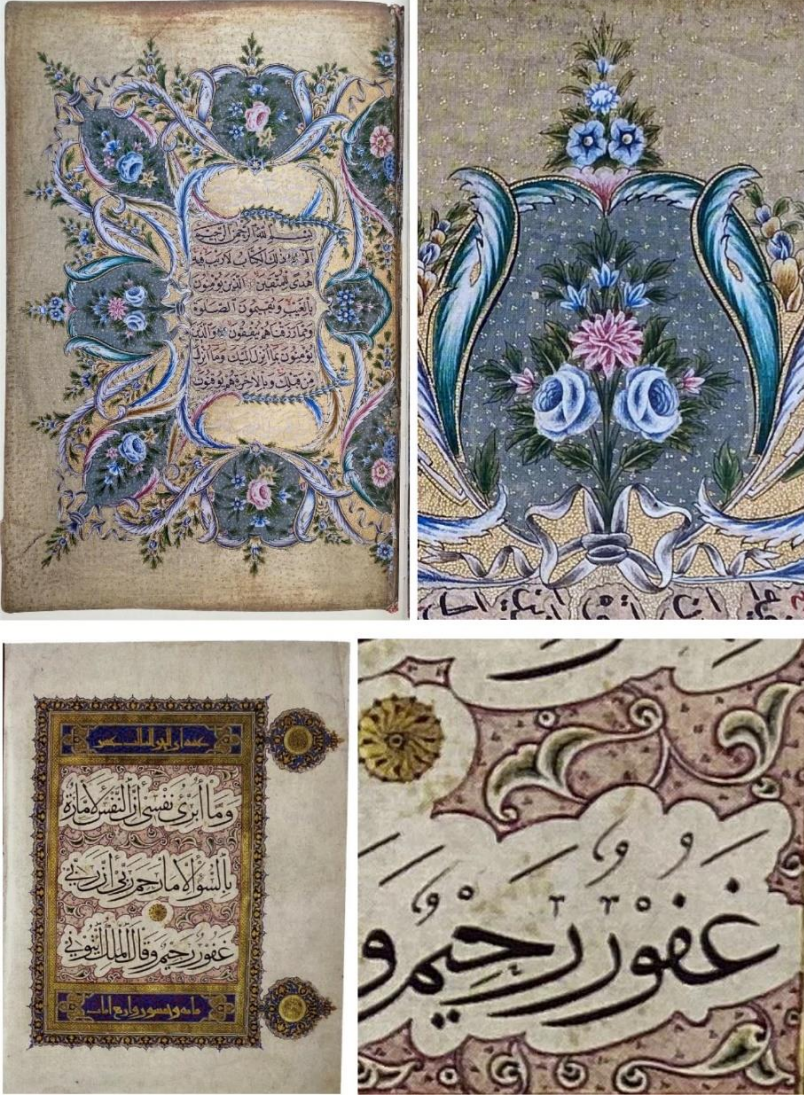 بسم الله الرحمن الرحيم
الم ذلك الكتاب لا ريب فيه
هدى للمتقين الذين يؤمنون
بالغيب ويقيمون الصلوة
ومما رزقناهم ينفقون والذين
يؤمنون بما أنزل إليك وما أنزل
من قبلك وبالآخرة هم يوقنون
الجزء الثالث عشر
وَمَا أُبَرِّئُ نَفْسِي إِنَّ النَّفْسَ لَأَمَّارَةٌ
بِالسُّوءِ إِلَّا مَا رَحِمَ رَبِّي إِنَّ رَبِّي
غَفُورٌ رَحِيمٌ وَقَالَ الْمَلِكُ ائْتُونِي
غَفُورٌ رَحِيمٌ و